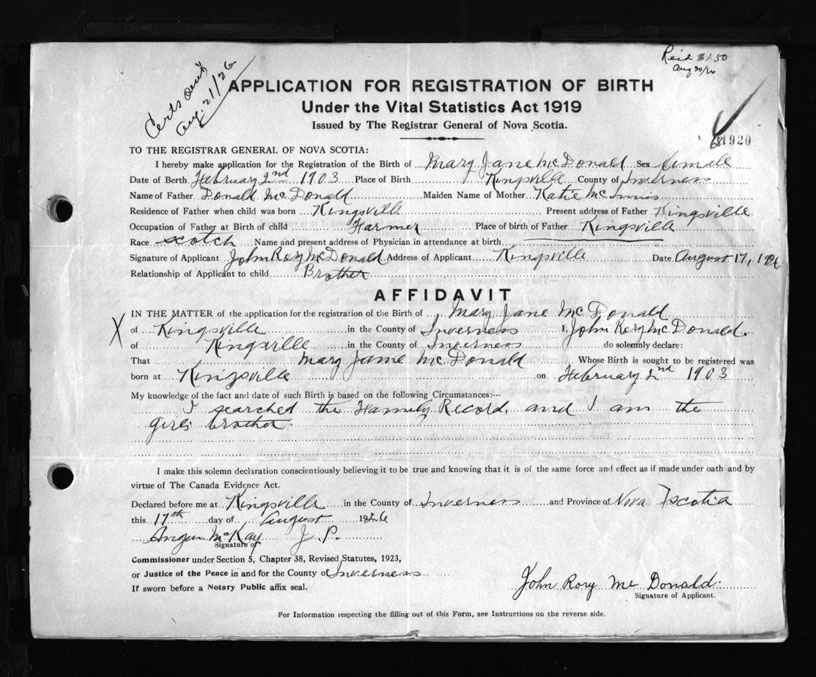 Certs sent
Aug. 21/26
Rec'd $1.50
Aug 20/26
APPLICATION FOR REGISTRATION OF BIRTH
Under the Vital Statistics Act 1919
Issued by The Registrar General of Nova Scotia.
1920
TO THE REGISTRAR GENERAL OF NOVA SCOTIA:
I hereby make application for the Registration of the Birth of Mary Jane McDonald Sex female
Date of Birth February 2nd 1903 Place of Birth Kingsville County of Inverness
Name of Father Donald McDonald Maiden Name of Mother Katie McInnis
Residence of Father when child was born Kingsville Present address of Father Kingsville
Occupation of Father at Birth of child Farmer Place of birth of Father Kingsville
Race Scotch Name and present address of Physician in attendance at birth
Signature of Applicant John Rory McDonald Address of Applicant Kingsville Date August 17, 1926
Relationship of Applicant to child Brother
AFFIDAVIT
IN THE MATTER of the application for the registration of the Birth of Mary Jane McDonald
X of Kingsville in the County of Inverness I, John Rory McDonald.
of Kingsville in the County of Inverness do solemnly declare:
That Mary Jane McDonald Whose Birth is sought to be registered was
born at Kingsville on February 2nd 1903
My knowledge of the fact and date of such Birth is based on the following Circumstances:—
I searched the Family Record, and I am the
girls brother
I make this solemn declaration conscientiously believing it to be true and knowing that it is of the same force and effect as if made under oath and by
virtue of The Canada Evidence Act.
Declared before me at Kingsville in the County of Inverness and Province of Nova Scotia
this 17th day of August 1926
Angus McKay J. P.
Signature of
Commissioner under Section 5, Chapter 38, Revised Statutes, 1923,
or Justice of the Peace in and for the County of Inverness
If sworn before a Notary Public affix seal.
John Rory McDonald
Signature of Applicant.
For Information respecting the filling out of this Form, see Instructions on the reverse side.